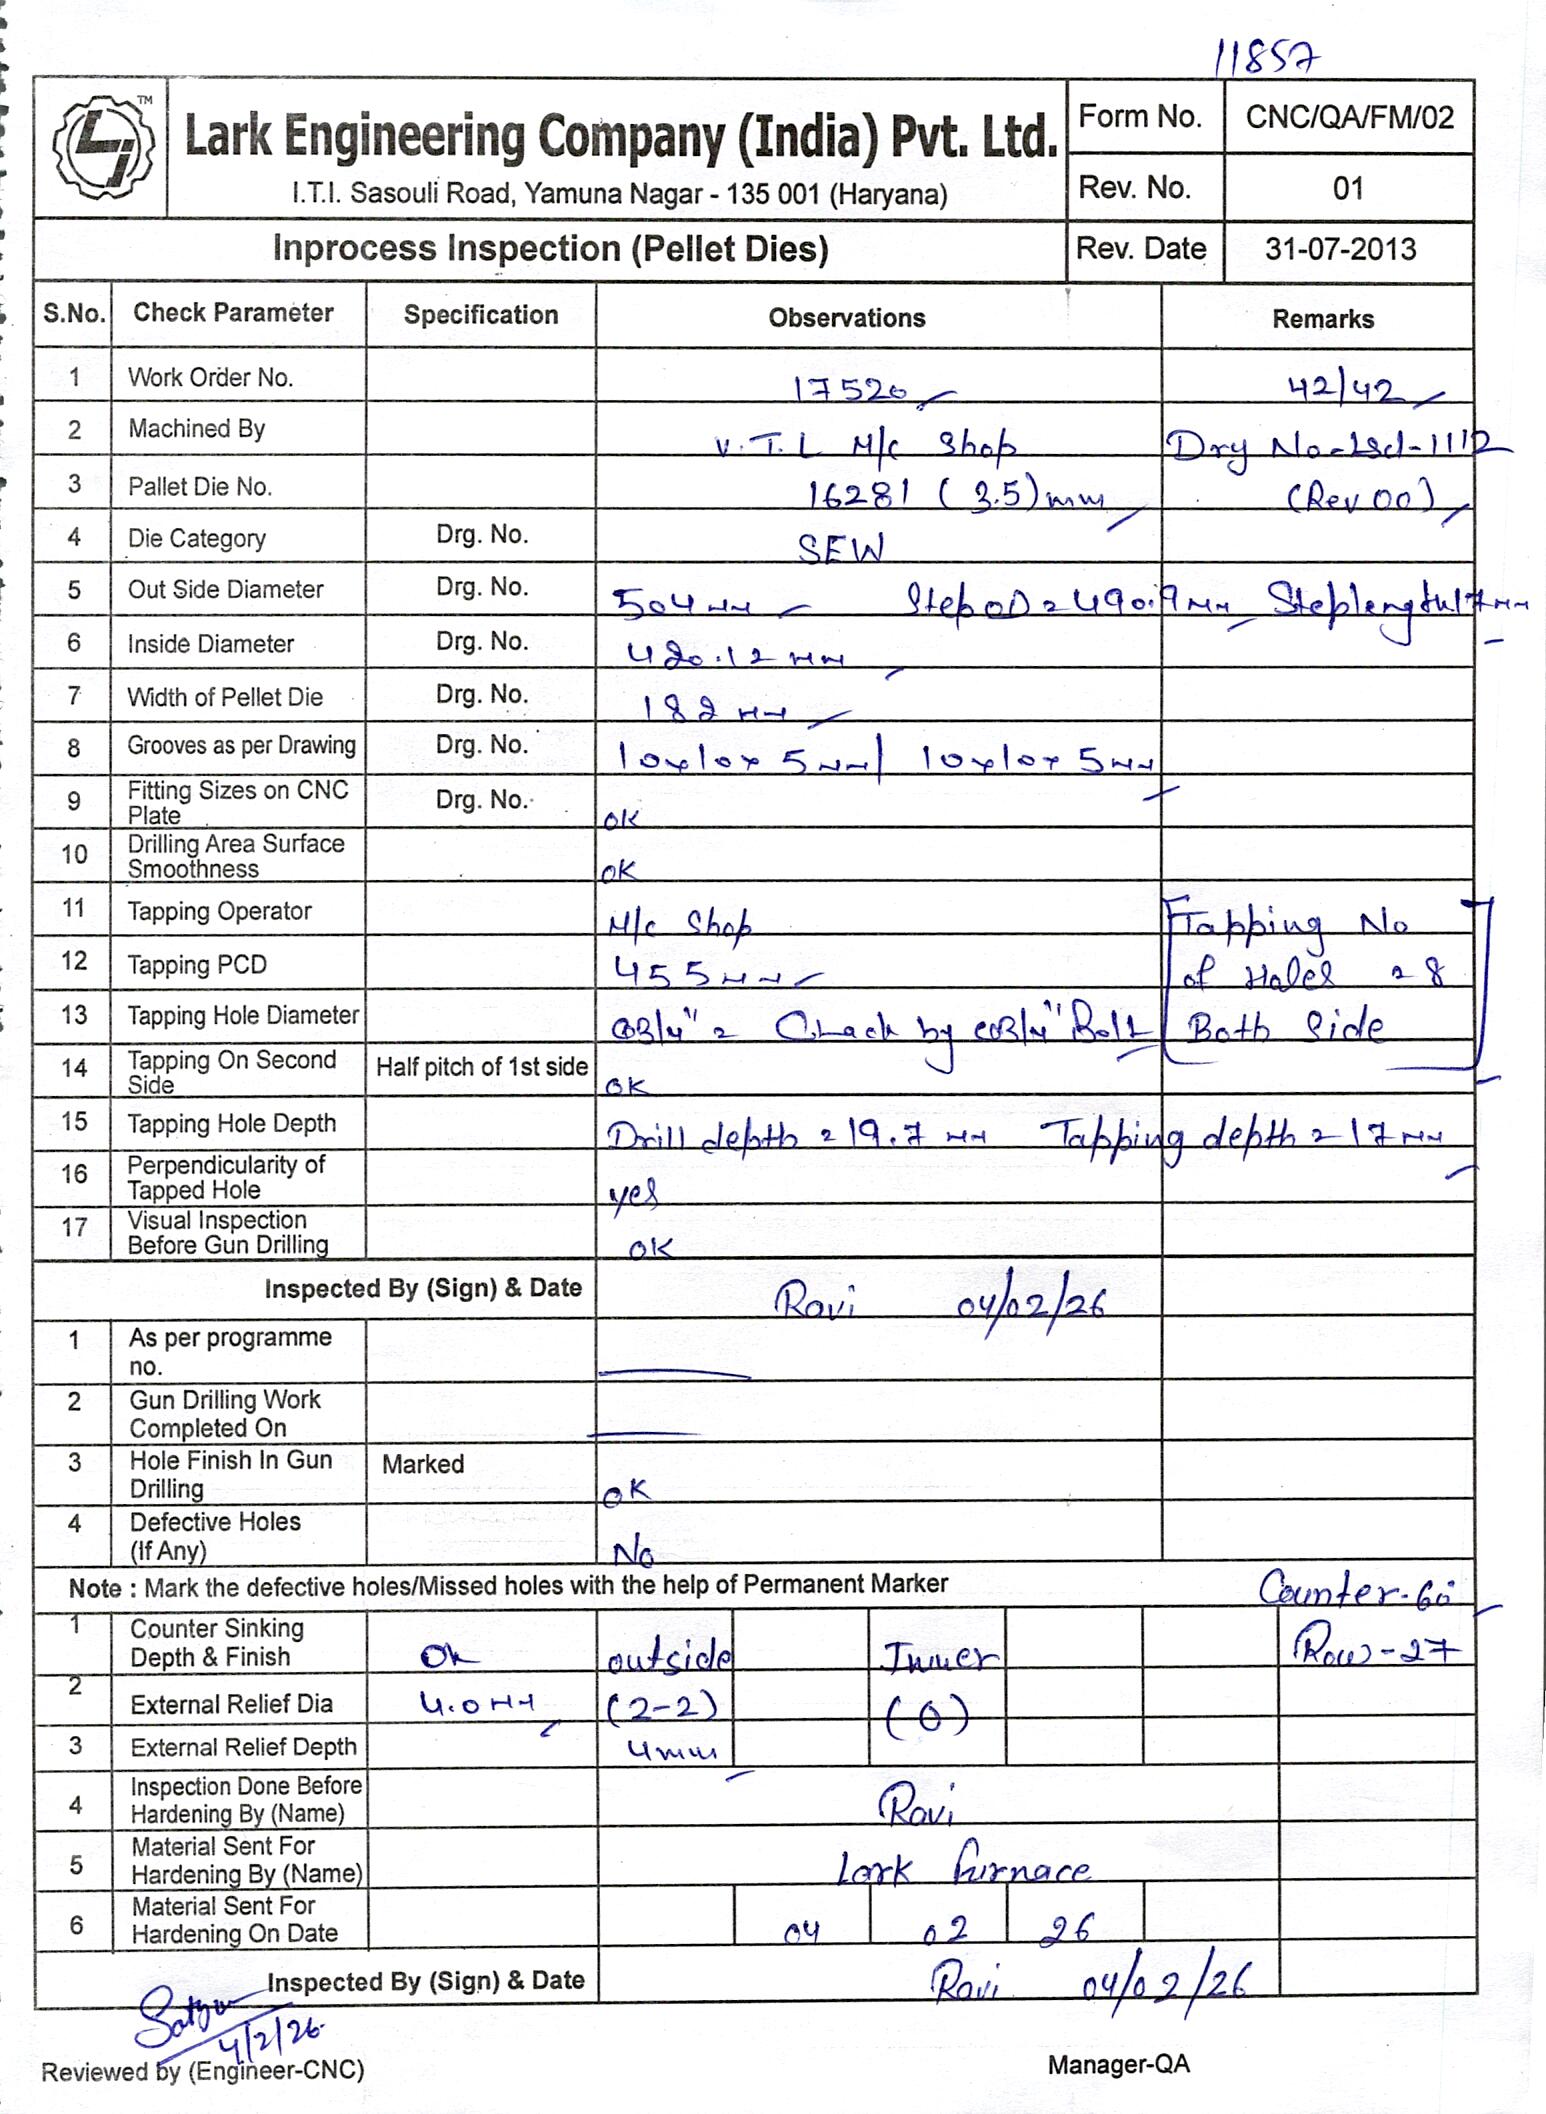 11857
TM
Lark Engineering Company (India) Pvt. Ltd.
I.T.I. Sasouli Road, Yamuna Nagar - 135 001 (Haryana)
Form No. CNC/QA/FM/02
Rev. No. 01
Inprocess Inspection (Pellet Dies) Rev. Date 31-07-2013
S.No. Check Parameter Specification Observations Remarks
1 Work Order No. 17520 42/42
2 Machined By V.T.L M/c Shop Drg No-Lsd-1112
3 Pallet Die No. 16281 (3.5)mm (Rev 00)
4 Die Category Drg. No. SEW
5 Out Side Diameter Drg. No. 504mm Step OD=490.9mm Steplength17mm
6 Inside Diameter Drg. No. 420.12 mm
7 Width of Pellet Die Drg. No. 182 mm
8 Grooves as per Drawing Drg. No. 10x10x5mm/10x10x5mm
9 Fitting Sizes on CNC Plate Drg. No. OK
10 Drilling Area Surface Smoothness OK
11 Tapping Operator M/c Shop Tapping No
12 Tapping PCD 455mm of Holes = 8
13 Tapping Hole Diameter 3/4" = Check by 3/4" Bolt Both Side
14 Tapping On Second Side Half pitch of 1st side OK
15 Tapping Hole Depth Drill depth=19.7 mm Tapping depth=17mm
16 Perpendicularity of Tapped Hole yes
17 Visual Inspection Before Gun Drilling OK
Inspected By (Sign) & Date Ravi 04/02/26
1 As per programme no.
2 Gun Drilling Work Completed On
3 Hole Finish In Gun Drilling Marked OK
4 Defective Holes (If Any) No
Note : Mark the defective holes/Missed holes with the help of Permanent Marker Counter-60
1 Counter Sinking Depth & Finish Ok outside Inner Row-27
2 External Relief Dia 4.0mm (2-2) (0)
3 External Relief Depth 4mm
4 Inspection Done Before Hardening By (Name) Ravi
5 Material Sent For Hardening By (Name) Lark furnace
6 Material Sent For Hardening On Date 04 02 26
Inspected By (Sign) & Date Ravi 04/02/26
4/2/26
Reviewed by (Engineer-CNC) Manager-QA